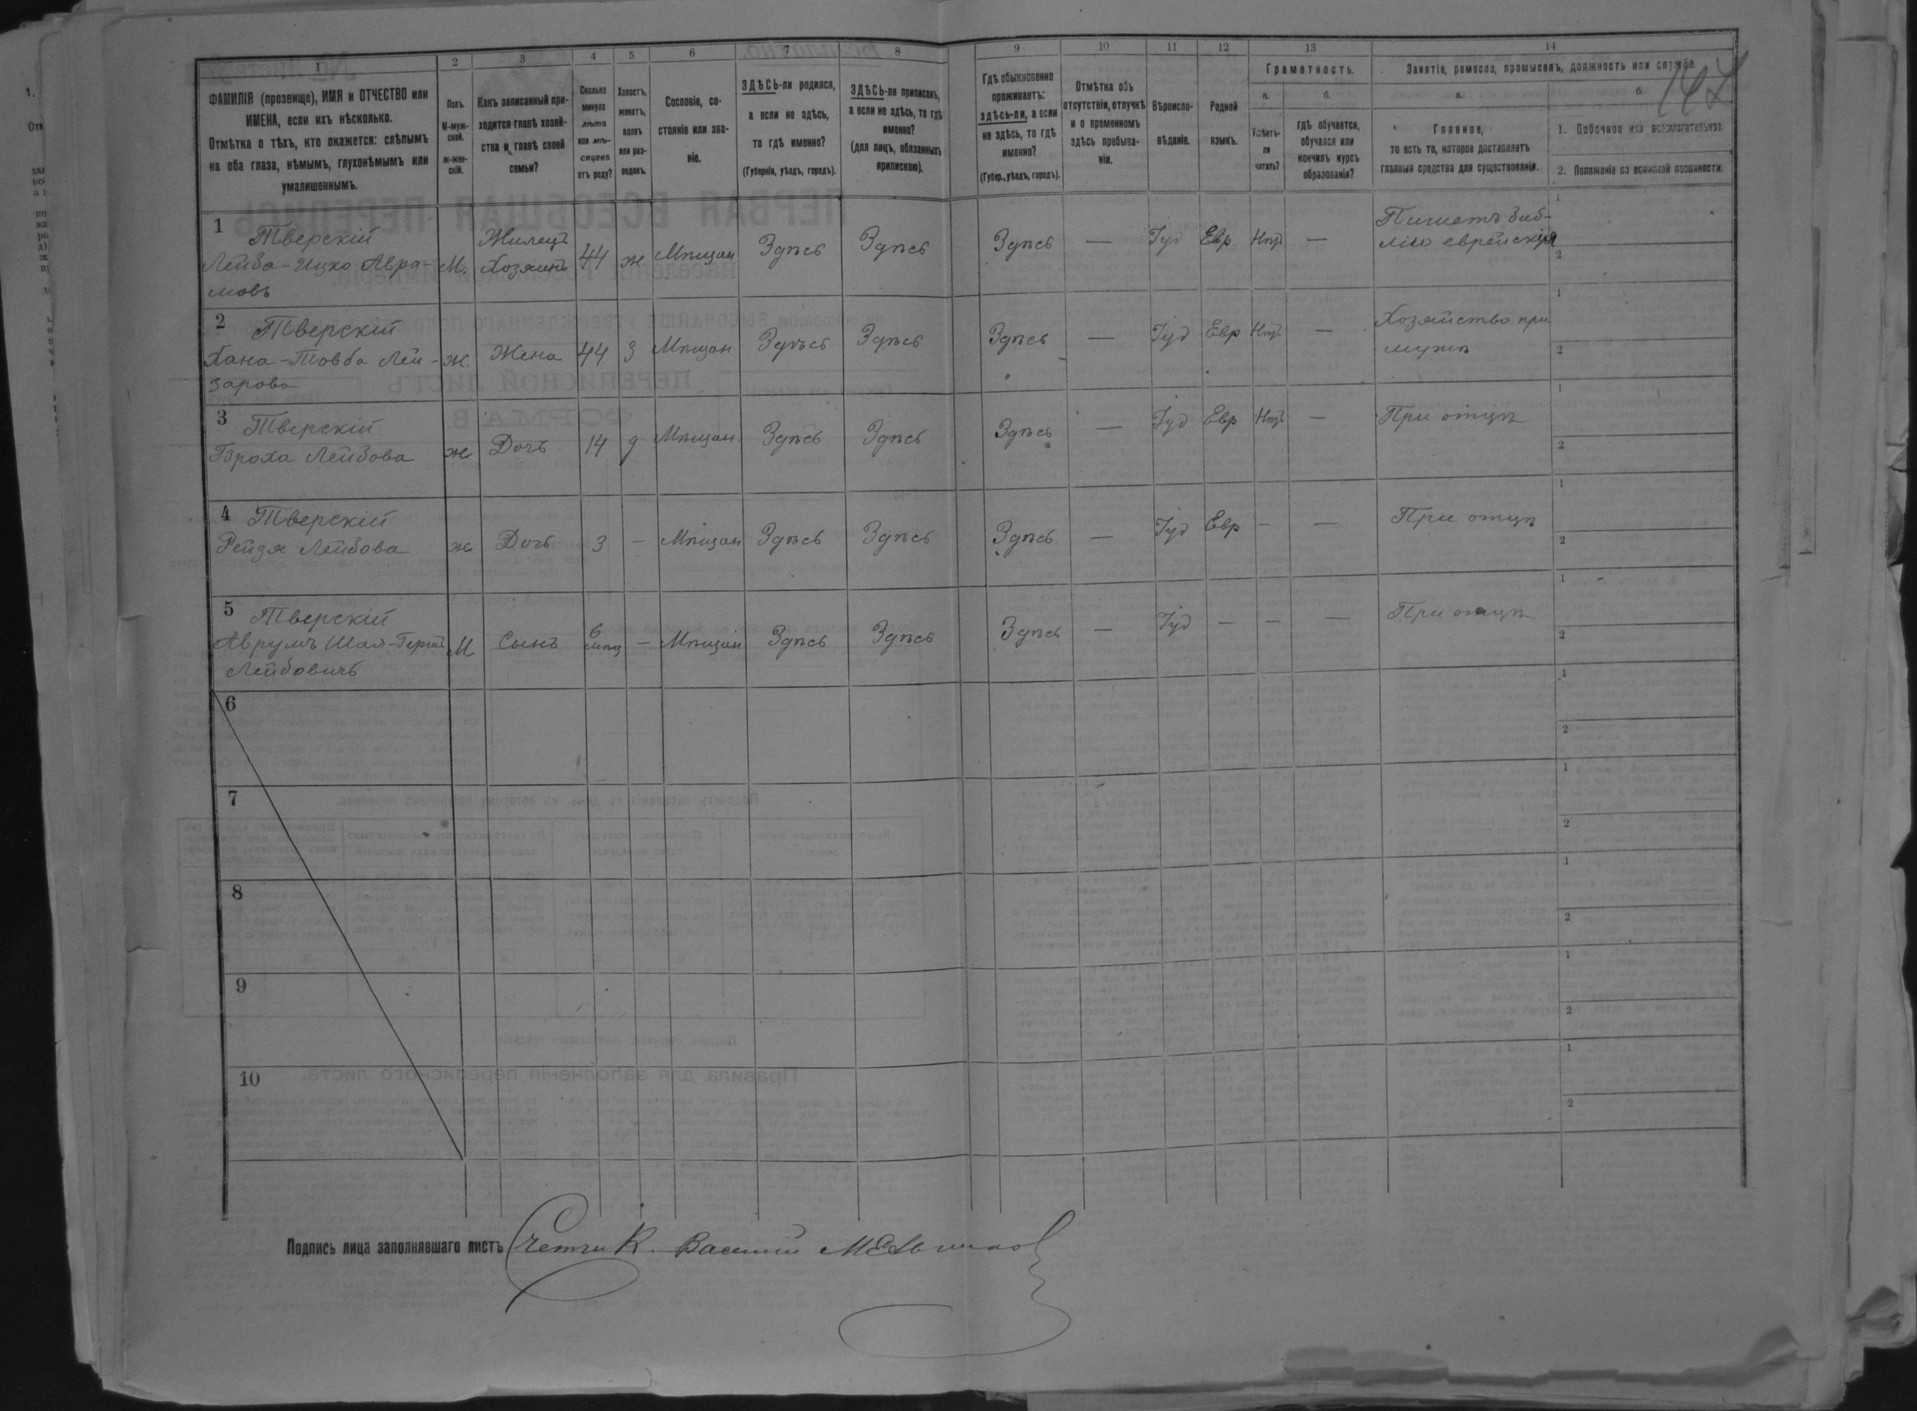 1 2 3 4 5 6 7 8 9 10 11 12 13 14
ФАМИЛІЯ (прозвище), ИМЯ и ОТЧЕСТВО или
ИМЕНА, если ихъ нѣсколько.
Отмѣтка о тѣхъ, кто окажется: слѣпымъ
на оба глаза, нѣмымъ, глухонѣмымъ или
умалишеннымъ.
Полъ.
М-муж-
ской.
Ж-жен-
скій.
Какъ записанный при-
ходится главѣ хозяй-
ства и главѣ своей
семьи?
Сколько
минуло
лѣтъ
или мѣ-
сяцевъ
отъ роду?
Холостъ,
женатъ,
вдовъ
или раз-
веденъ.
Сословіе, со-
стояніе или зва-
ніе.
ЗДѢСЬ-ли родился,
а если не здѣсь,
то гдѣ именно?
(Губернія, уѣздъ, городъ).
ЗДѢСЬ-ли приписанъ,
а если не здѣсь, то гдѣ
именно?
(для лицъ, обязанныхъ
припискою).
Гдѣ обыкновенно
проживаетъ:
здѣсь-ли, а если
не здѣсь, то гдѣ
именно?
(Губер., уѣздъ, городъ).
Отмѣтка объ
отсутствіи, отлучкѣ
и о временномъ
здѣсь пребыва-
ніи.
Вѣроиспо-
вѣданіе.
Родной
языкъ.
Грамотность.
а.
Умѣетъ-
ли
читать?
б.
Гдѣ обучается,
обучался или
кончилъ курсъ
образованія?
Занятіе, ремесло, промыселъ, должность или служба.
а.
Главное,
то есть то, которое доставляетъ
главныя средства для существованія.
б.
1. Побочное или вспомогательное.
2. Положеніе по воинской повинности.
1 Тверскій
Лейба-Ицко Авра-
мовъ
М. Жилецъ
Хозяинъ
44 ж. Мѣщан Здѣсь Здѣсь Здѣсь — Іуд Евр. Нѣтъ —
Пишетъ биб-
лію еврейскія
2 Тверскій
Хана-Товба Лей-
зарова
ж. Жена 44 З Мѣщан Здѣсь Здѣсь Здѣсь — Іуд Евр Нѣтъ —
Хозяйство при
мужѣ
3 Тверскій
Броха Лейбова
ж Дочь 14 д Мѣщан. Здѣсь Здѣсь Здѣсь — Іуд Евр Нѣтъ — При отцѣ
4 Тверскій
Рейзя Лейбова
ж Дочь 3 — Мѣщан Здѣсь Здѣсь Здѣсь — Іуд Евр — — При отцѣ
5 Тверскій
Аврумъ
Лейбовичъ
М Сынъ 6 — Мѣщан Здѣсь Здѣсь Здѣсь — Іуд — — — При отцѣ
6
7
8
9
10
Подпись лица заполнявшаго листъ Счетчик. Василій Мельников